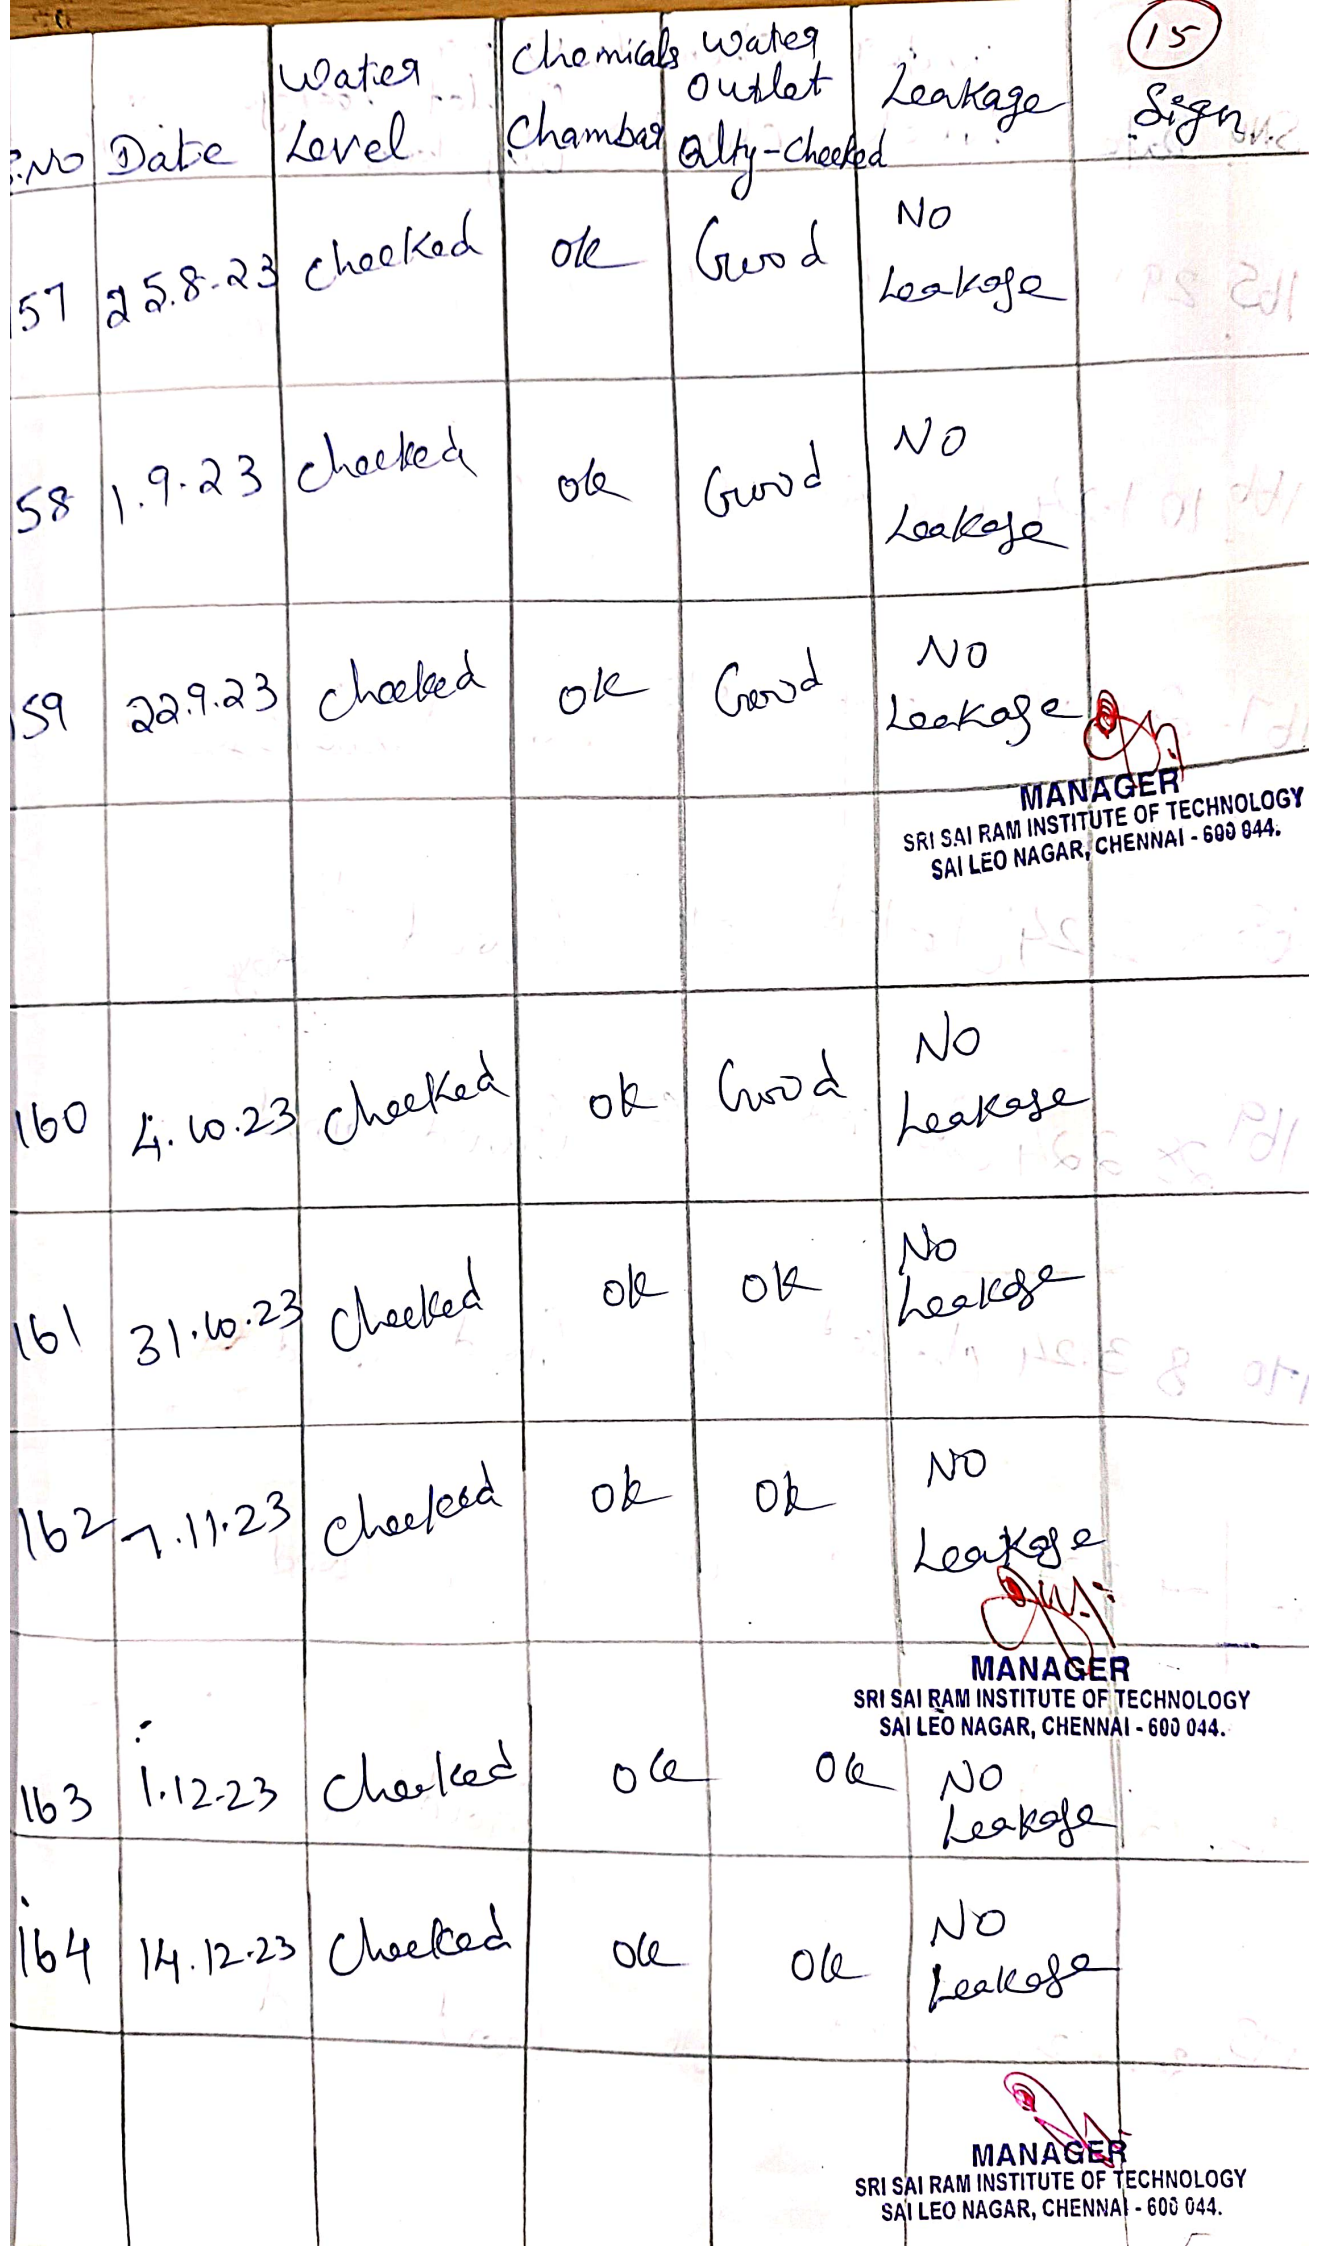 15
S.NO Date Water Level Chemicals Chambar Water Outlet Qlty-Checked Leakage Sign
57 25.8.23 Checked Ok Good No Leakage
58 1.9.23 Checked Ok Good No Leakage
159 22.9.23 Checked Ok Good No Leakage
MANAGER
SRI SAI RAM INSTITUTE OF TECHNOLOGY
SAI LEO NAGAR, CHENNAI - 600 044.
160 4.10.23 Checked Ok Good No Leakage
161 31.10.23 Checked Ok Ok No Leakage
162 7.11.23 Checked Ok Ok No Leakage
MANAGER
SRI SAI RAM INSTITUTE OF TECHNOLOGY
SAI LEO NAGAR, CHENNAI - 600 044.
163 1.12.23 Checked Ok Ok No Leakage
164 14.12.23 Checked Ok Ok No Leakage
MANAGER
SRI SAI RAM INSTITUTE OF TECHNOLOGY
SAI LEO NAGAR, CHENNAI - 600 044.